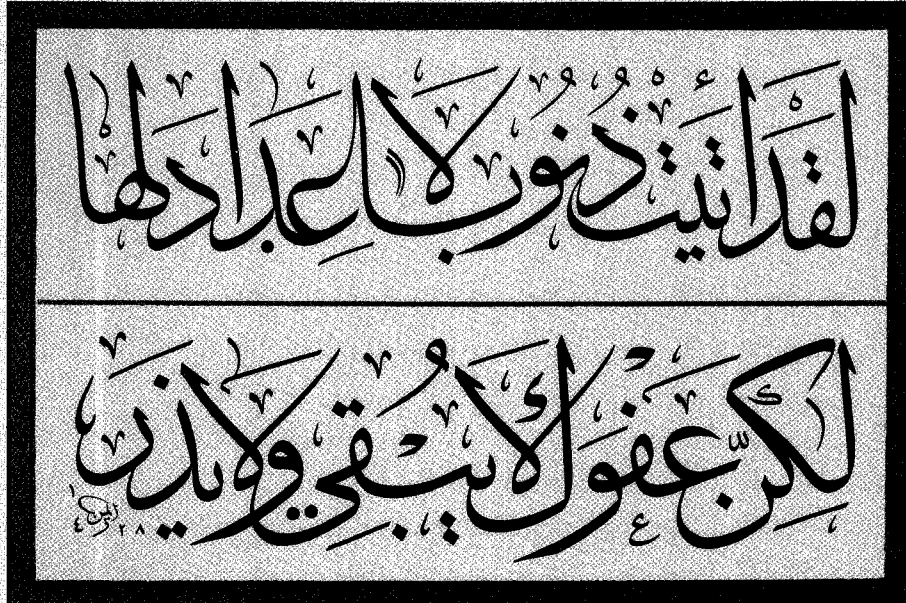 لَقَدْ أَتَيْتُ ذُنُوبًا لَا عِدَادَ لَهَا
لَكِنَّ عَفْوَكَ لَا يُبْقِي وَلَا يَذَرُ